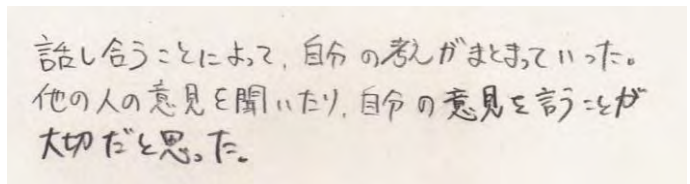 話し合うことによって、自分の考えがまとまっていった。
他の人の意見を聞いたり、自分の意見を言うことが
大切だと思った。